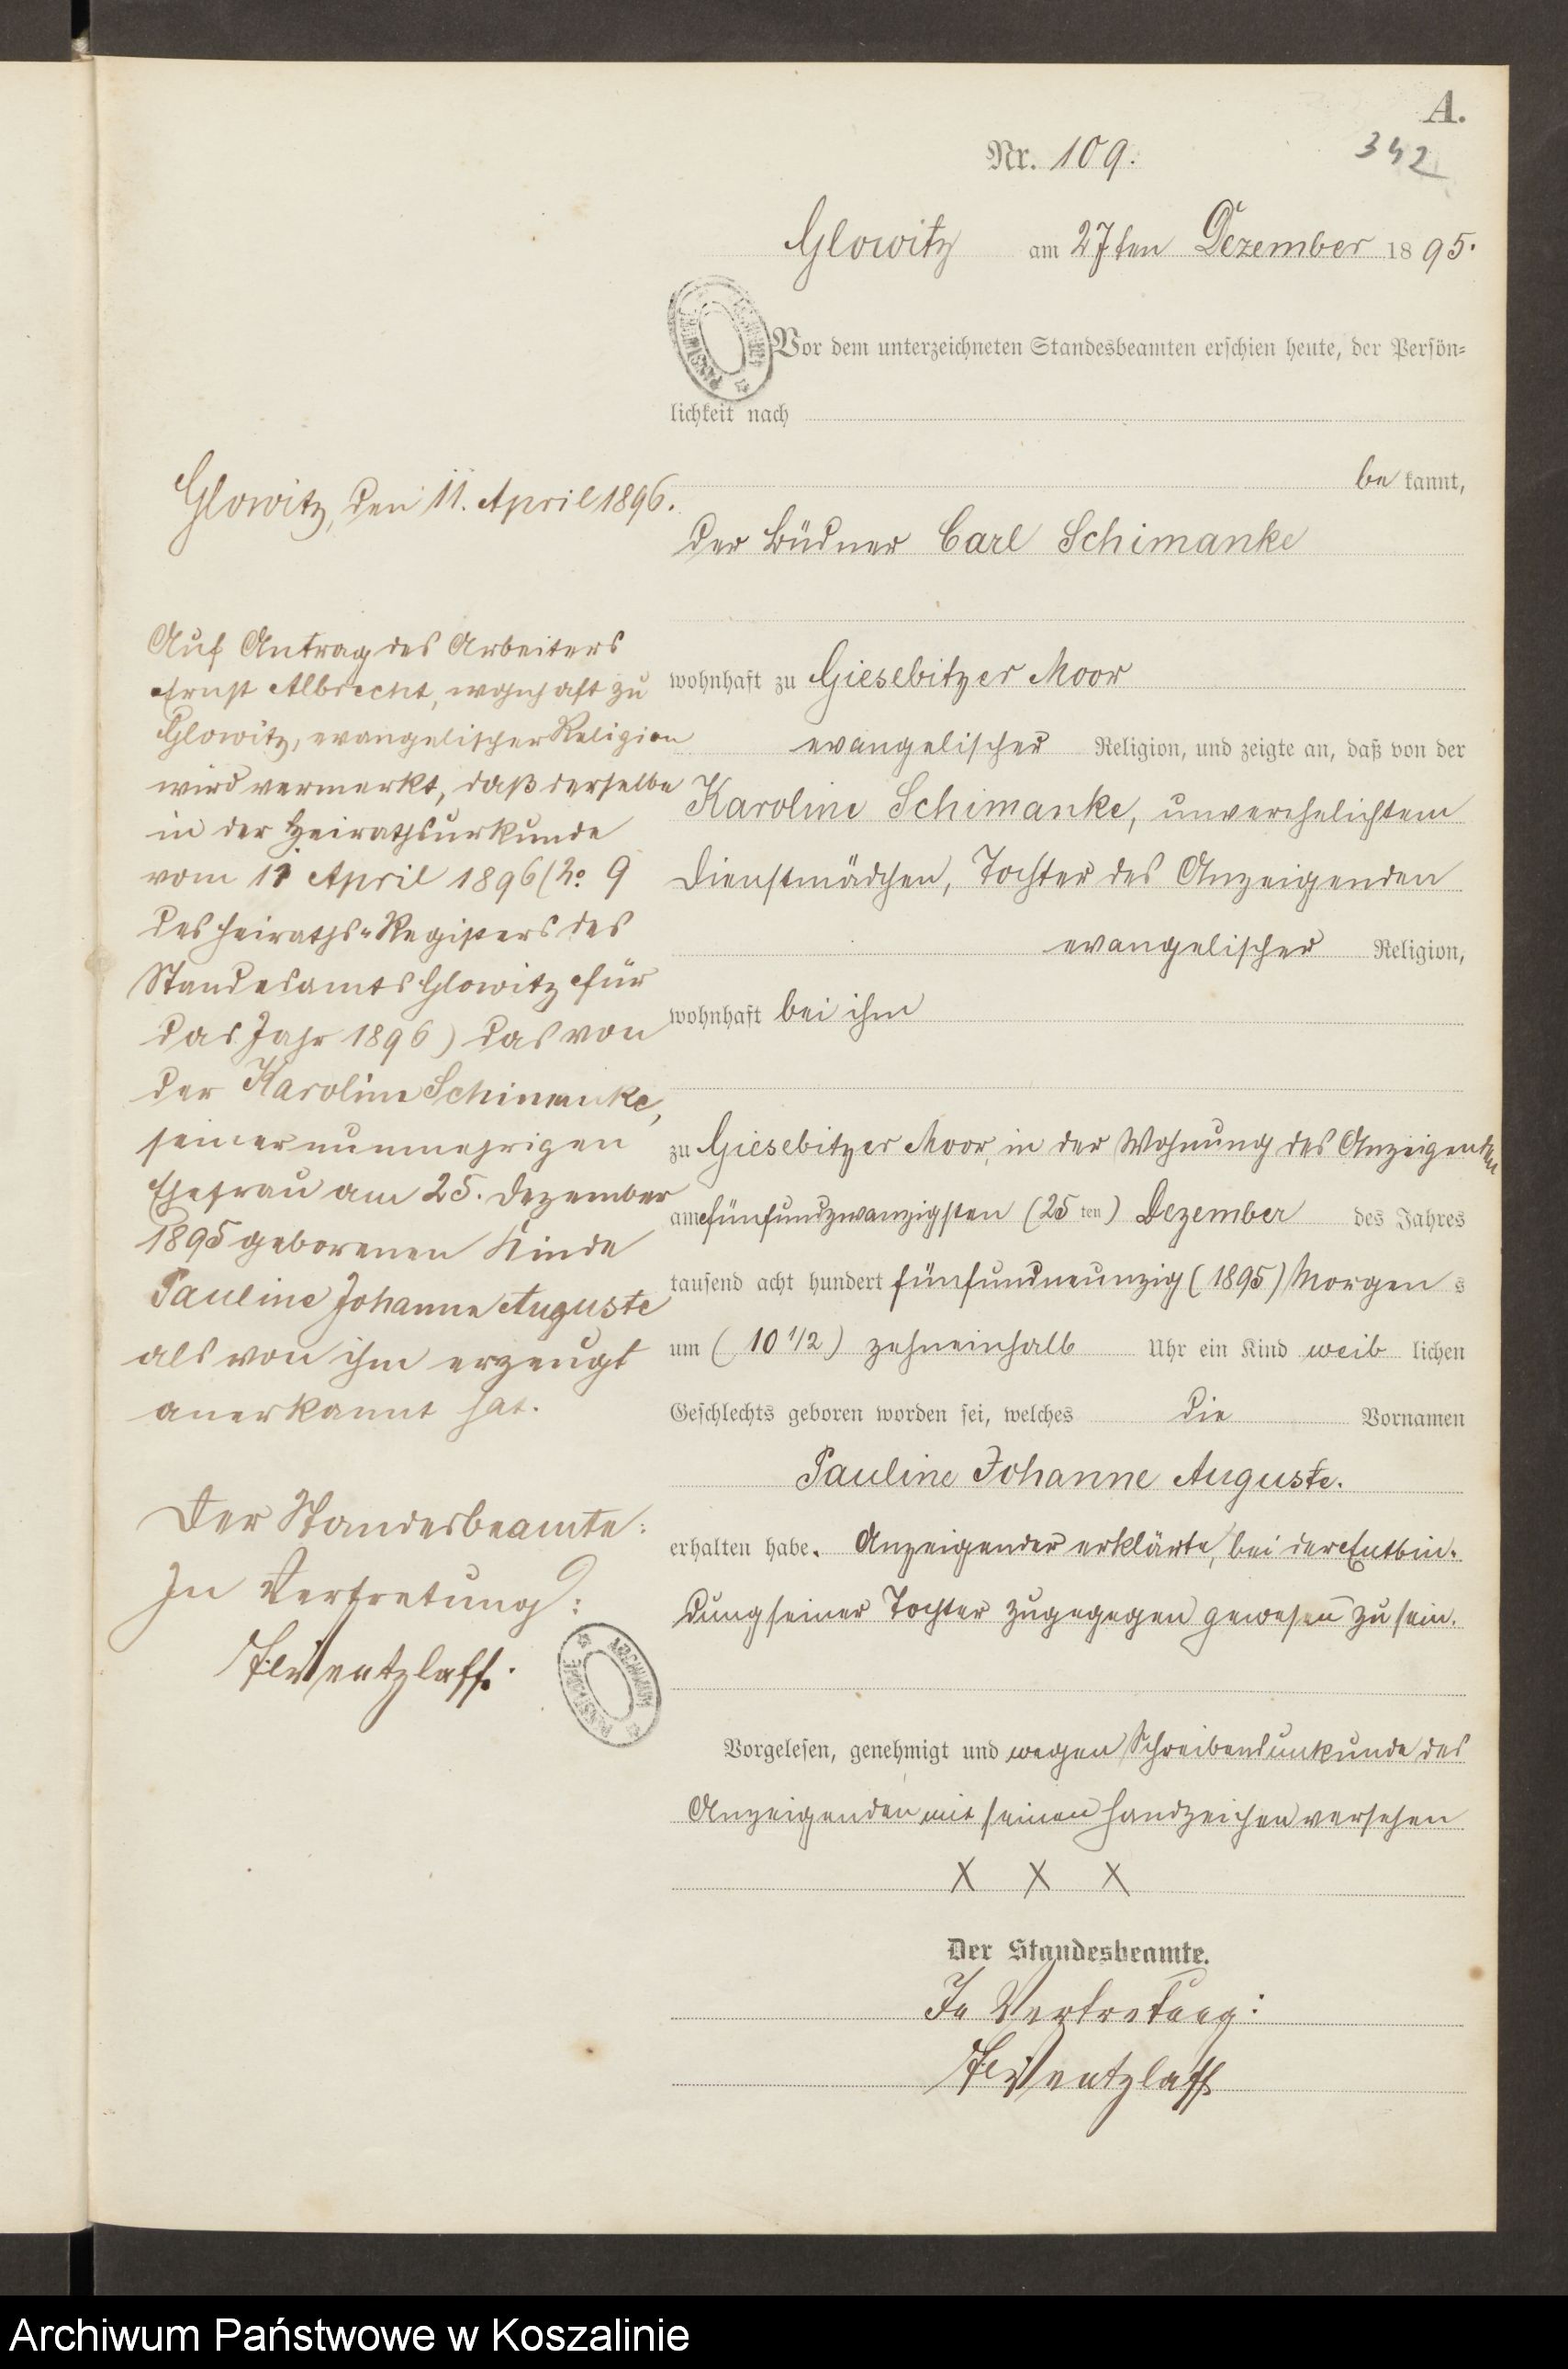 A.
Nr. 109.
342
Glowitz am 27ten Dezember 1895.
Vor dem unterzeichneten Standesbeamten erschien heute, der Persön-
lichkeit nach
be kannt,
der Büdner Carl Schimanke
wohnhaft zu Giesebitzer Moor
evangelischer Religion, und zeigte an, daß von der
Karoline Schimanke, unverehelichtem
Dienstmädchen, Tochter des Anzeigenden
evangelischer Religion,
wohnhaft bei ihm
zu Giesebitzer Moor, in der Wohnung des Anzeigenden
am fünfundzwanzigsten (25 ten) Dezember des Jahres
tausend acht hundert fünfundneunzig (1895) Morgen s
um (10 1/2) zehneinhalb Uhr ein Kind weib lichen
Geschlechts geboren worden sei, welches die Vornamen
Pauline Johanne Auguste.
erhalten habe. Anzeigender erklärte, bei der Entbin-
dung seiner Tochter zugegegen gewesen zu sein.
Vorgelesen, genehmigt und wegen Schreibensunkunde des
Anzeigenden mit seinen Handzeichen versehen
X X X
Der Standesbeamte.
In Vertretung:
Wentzlaff
Glowitz, den 11. April 1896.
Auf Antrag des Arbeiters
Ernst Albrecht, wohnhaft zu
Glowitz, evangelischer Religion
wird vermerkt, daß derselbe
in der Heirathsurkunde
vom 11 April 1896 (No 9
des Heiraths-Registers des
Standesamts Glowitz für
das Jahr 1896) das von
der Karoline Schimanke,
seiner nunmehrigen
Ehefrau am 25. Dezember
1895 geborenen Kinde
Pauline Johanne Auguste
als von ihm erzeugt
anerkannt hat.
Der Standesbeamte:
In Vertretung:
Wentzlaff.
Archiwum Państwowe w Koszalinie